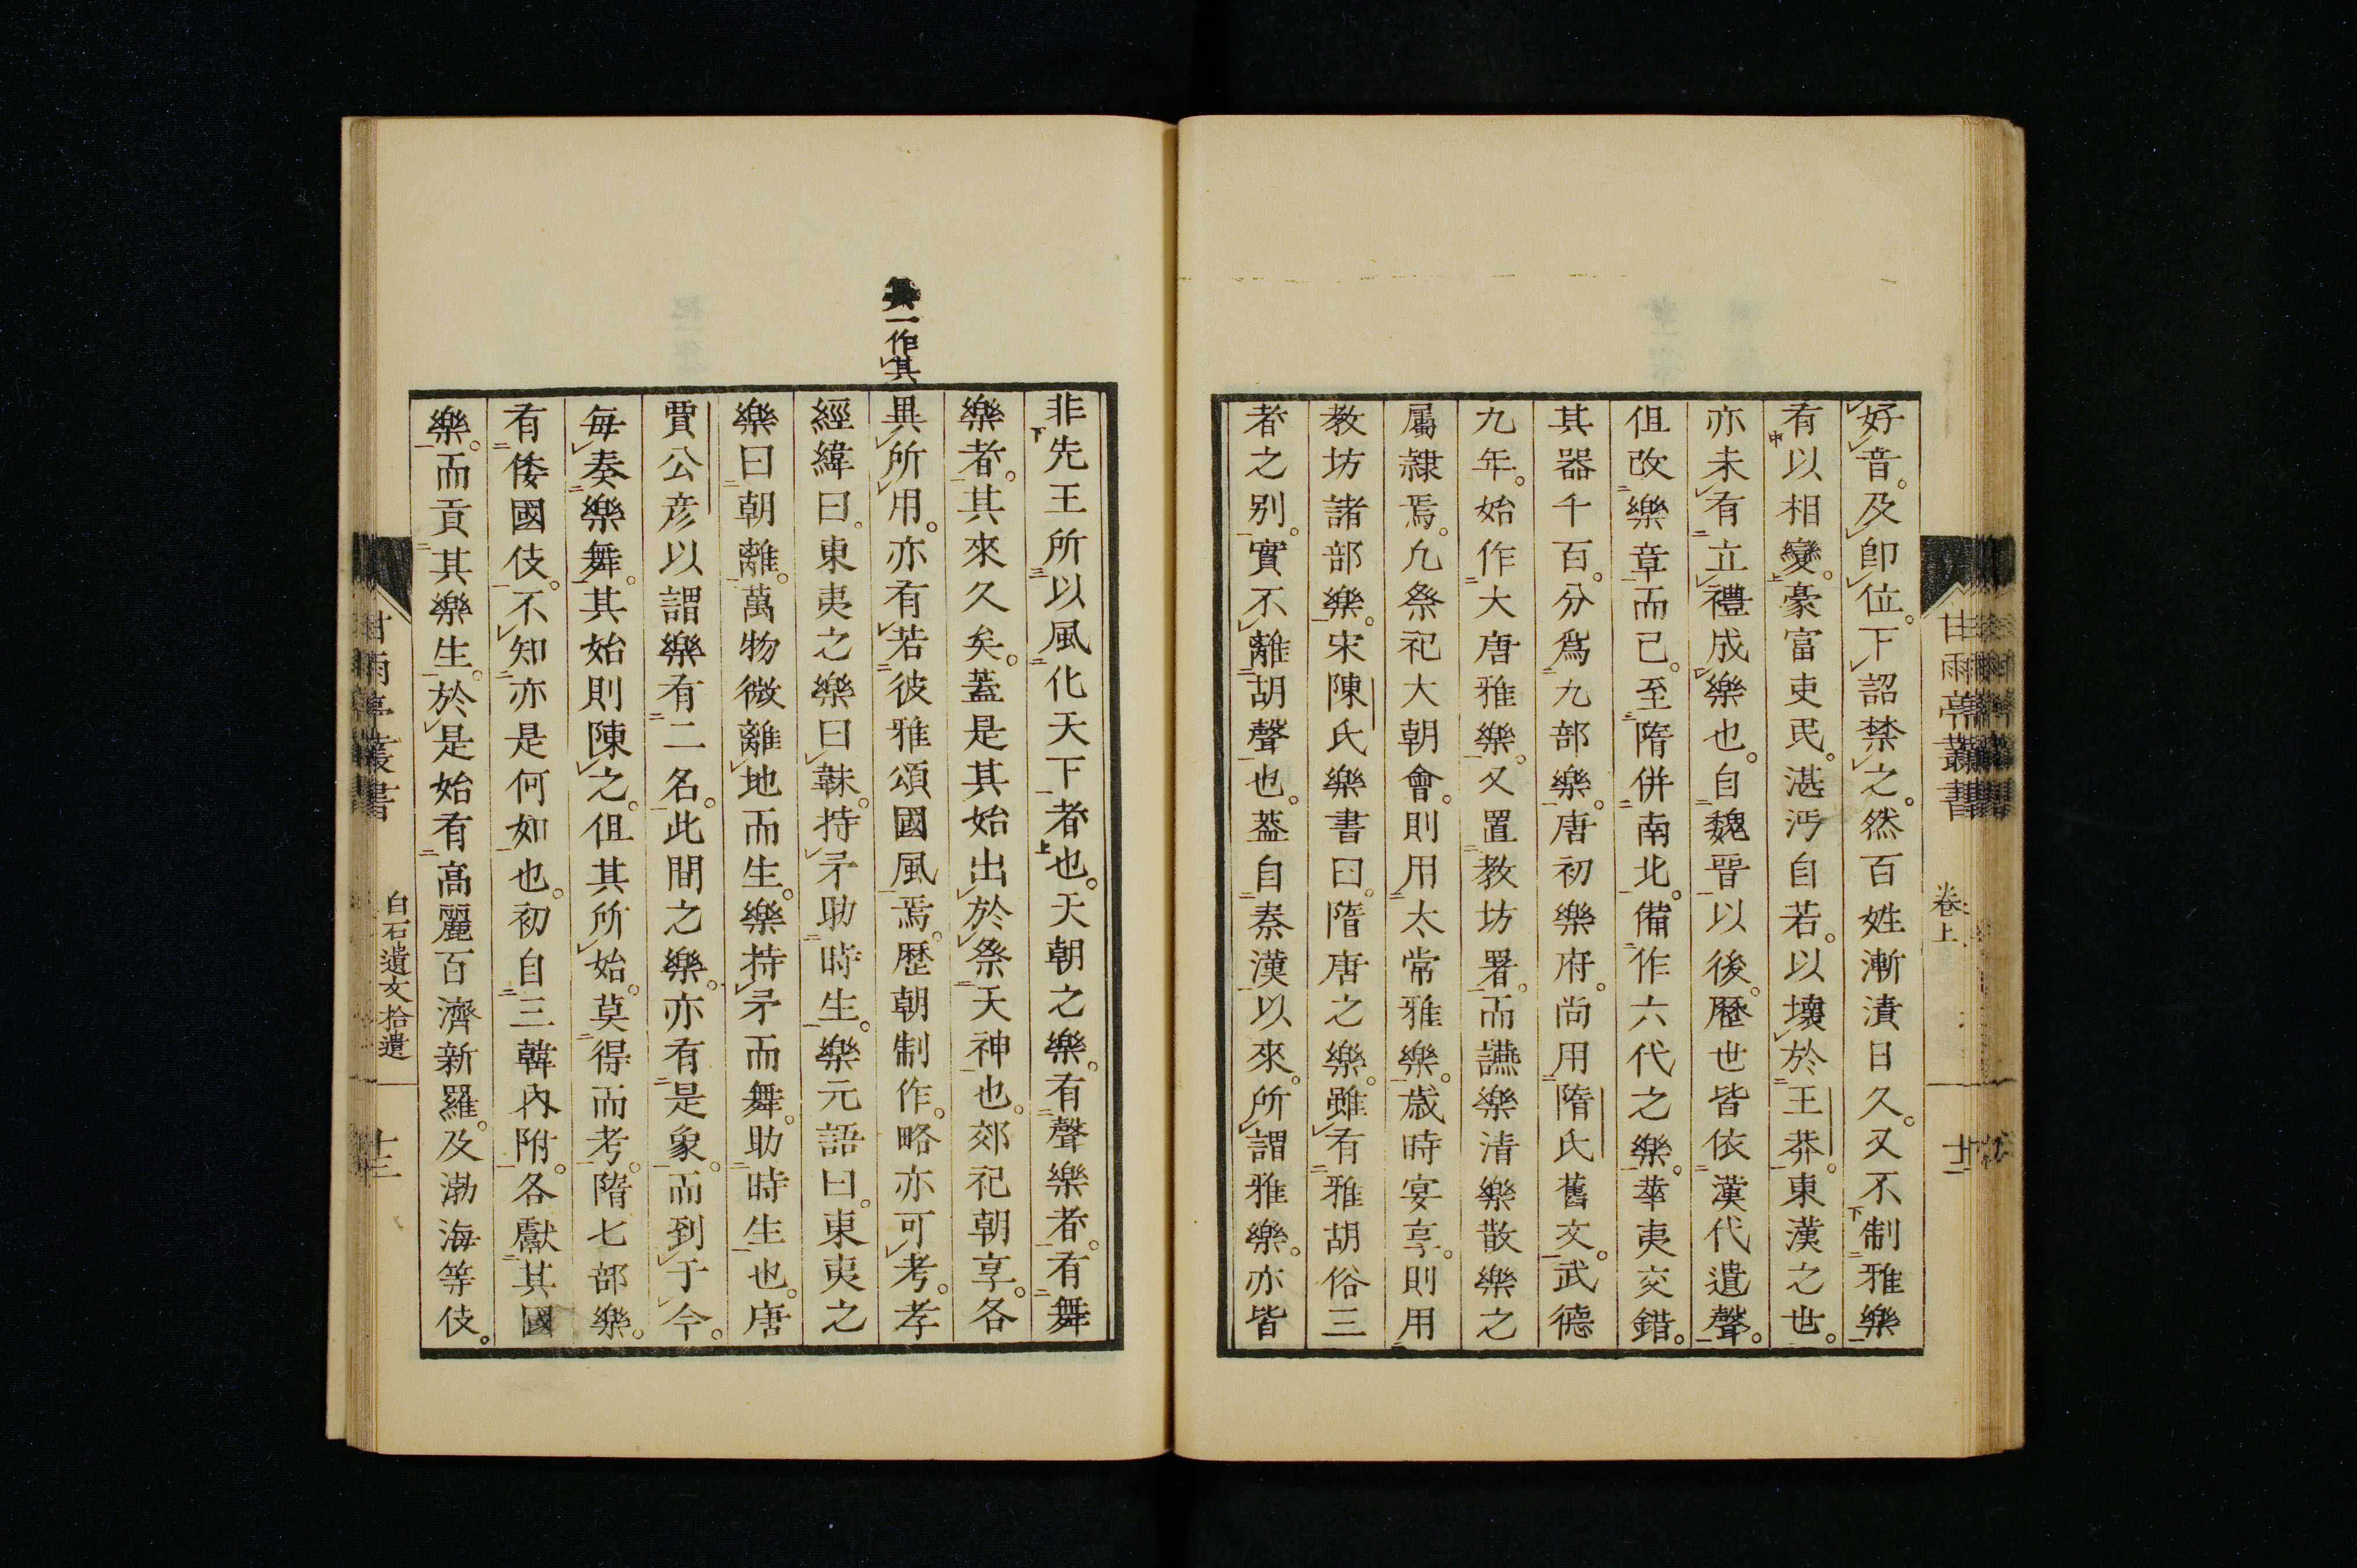 好音。及卽位。下詔禁之。然百姓漸漬日久。又不制雅樂
有以相變。豪富吏民。湛沔自若。以壞於王莽。東漢之世。
亦未有立禮成樂也。自魏晉以後。歷世皆依漢代遺聲。
但改樂章而已。至隋併南北。備作六代之樂。華夷交錯。
其器千百。分爲九部樂。唐初樂府。尚用隋氏舊文。武德
九年。始作大唐雅樂。又置教坊署。而讌樂清樂散樂之
屬隸焉。凢祭祀大朝會。則用太常雅樂。歲時宴享。則用
教坊諸部樂。宋陳氏樂書曰。隋唐之樂。雖有雅胡俗三
者之別。實不離胡聲也。葢自秦漢以來。所謂雅樂。亦皆
甘雨亭叢書
卷上
廿二
一作其
非先王所以風化天下者也。天朝之樂。有聲樂者。有舞
樂者。其來久矣。蓋是其始出於祭天神也。郊祀朝享。各
異所用。亦有若彼雅頌國風焉。歷朝制作。略亦可考。孝
經緯曰。東夷之樂曰韎。持矛助時生。樂元語曰。東夷之
樂曰朝離。萬物微離地而生。樂持矛而舞。助時生也。唐
賈公彥以謂樂有二名。此間之樂。亦有是象。而到于今。
每奏樂舞。其始則陳之。但其所始。莫得而考。隋七部樂。
有倭國伎。不知亦是何如也。初自三韓內附。各獻其國
樂。而貢其樂生。於是始有高麗百濟新羅。及渤海等伎。
甘雨亭叢書
白石遺文拾遺